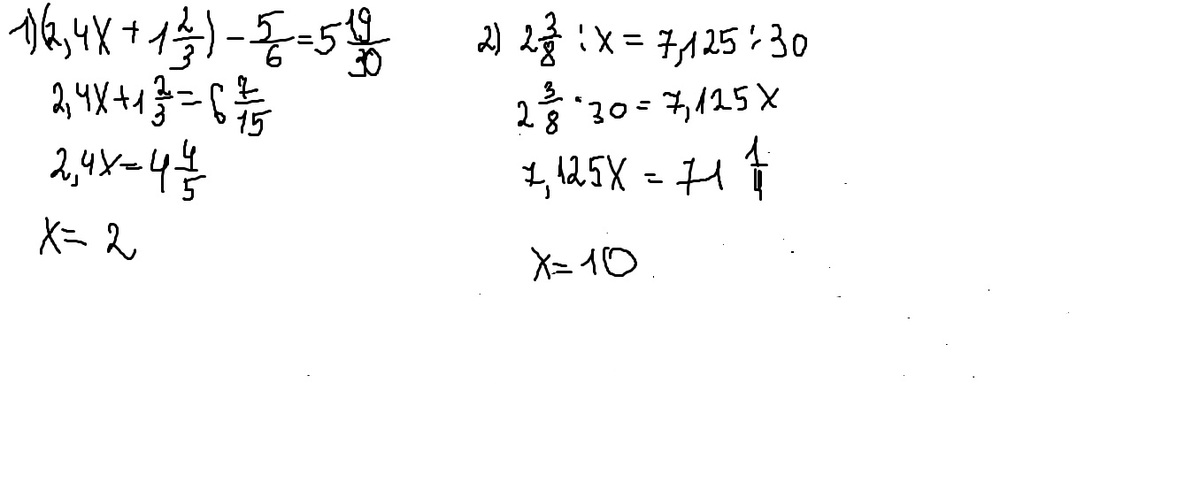 1)(2,4x + 1 2/3) - 5/6 = 5 19/30
2,4x + 1 2/3 = 6 7/15
2,4x = 4 4/5
x = 2
2) 2 3/8 : x = 7,125 : 30
2 3/8 · 30 = 7,125x
7,125x = 71 1/4
x = 10